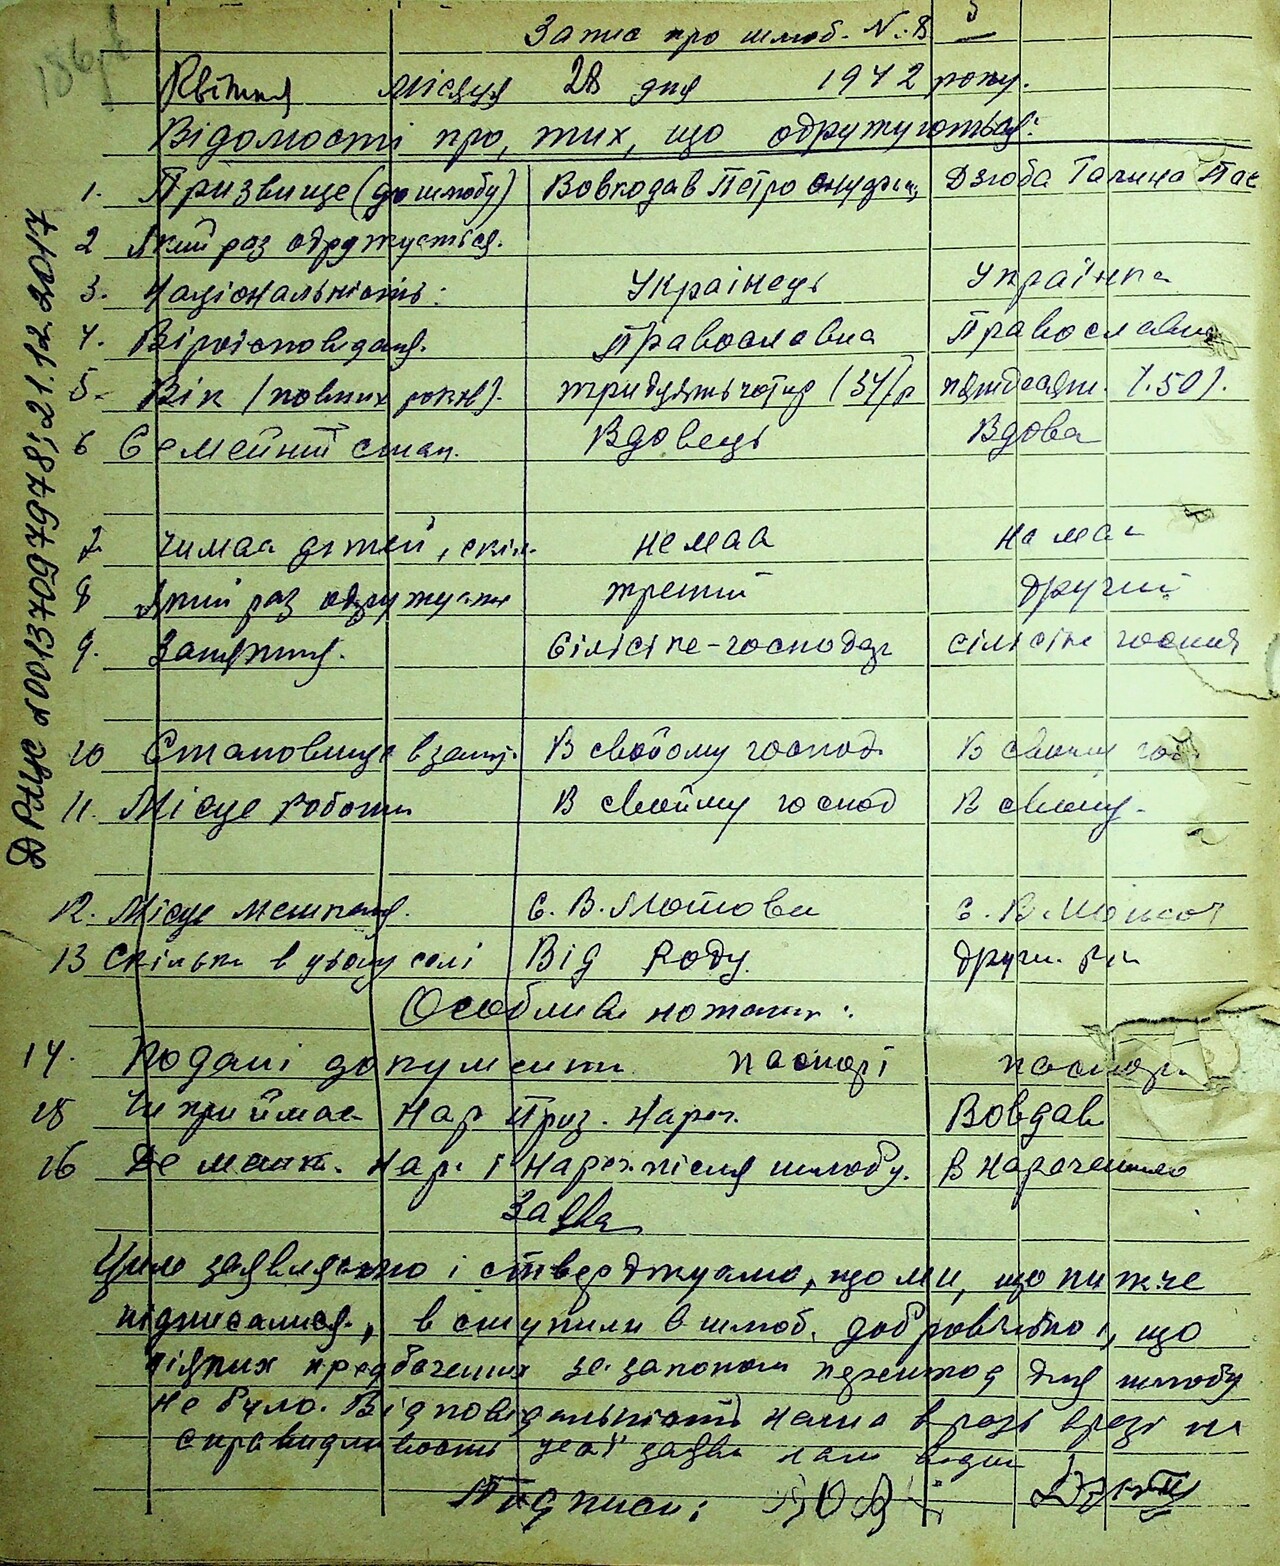 Запис про шлюб. №. 8
Квітня місяця 28 дня 1942 року.
Відомості про, тих, що одружуються:
1. Призвище (до шлюбу) Вовкодав Петро Дзюба Галина Пав
2 Який раз одружується.
3. Національність: Українець Українка
4. Віроісповідання. Православна Православна
5. Вік (повних років). тридцять чотир (34) р пятдесят. (50).
6 Семейний стан. Вдовець Вдова
7. Чи маа дітей, скіл. немаа на маа
8 Який раз одружуется третий другий
9. Заняття. Сілісіке-господар сілісіке
10 Становище в занят. В свойому господ. В своєму гос
11. Місце роботи В свойму господ В своєму.
12. Місце мешкання. С. В. С. В.
13 Скільки в цьому селі Від Роду. други
Особливі нотатки:
14. Подані документи паспорі паспорі
15 Чи приймає Нар Приз. Нареч. Вовдав
16 Де мешк. Нар. і Нареч. після шлюбу. В нареченого
Заява
Цим заявляємо і стверджуамо, що ми, що нижче
підписалися, вступили в шлюб. добровільно, що
ніяких предбачених за законом перешкод для шлюбу
не було. Відповідальність наша в разі в разі не
справидливости цеаї заяви нам
Подписи:
ДРАЦС 21.12.2017
186